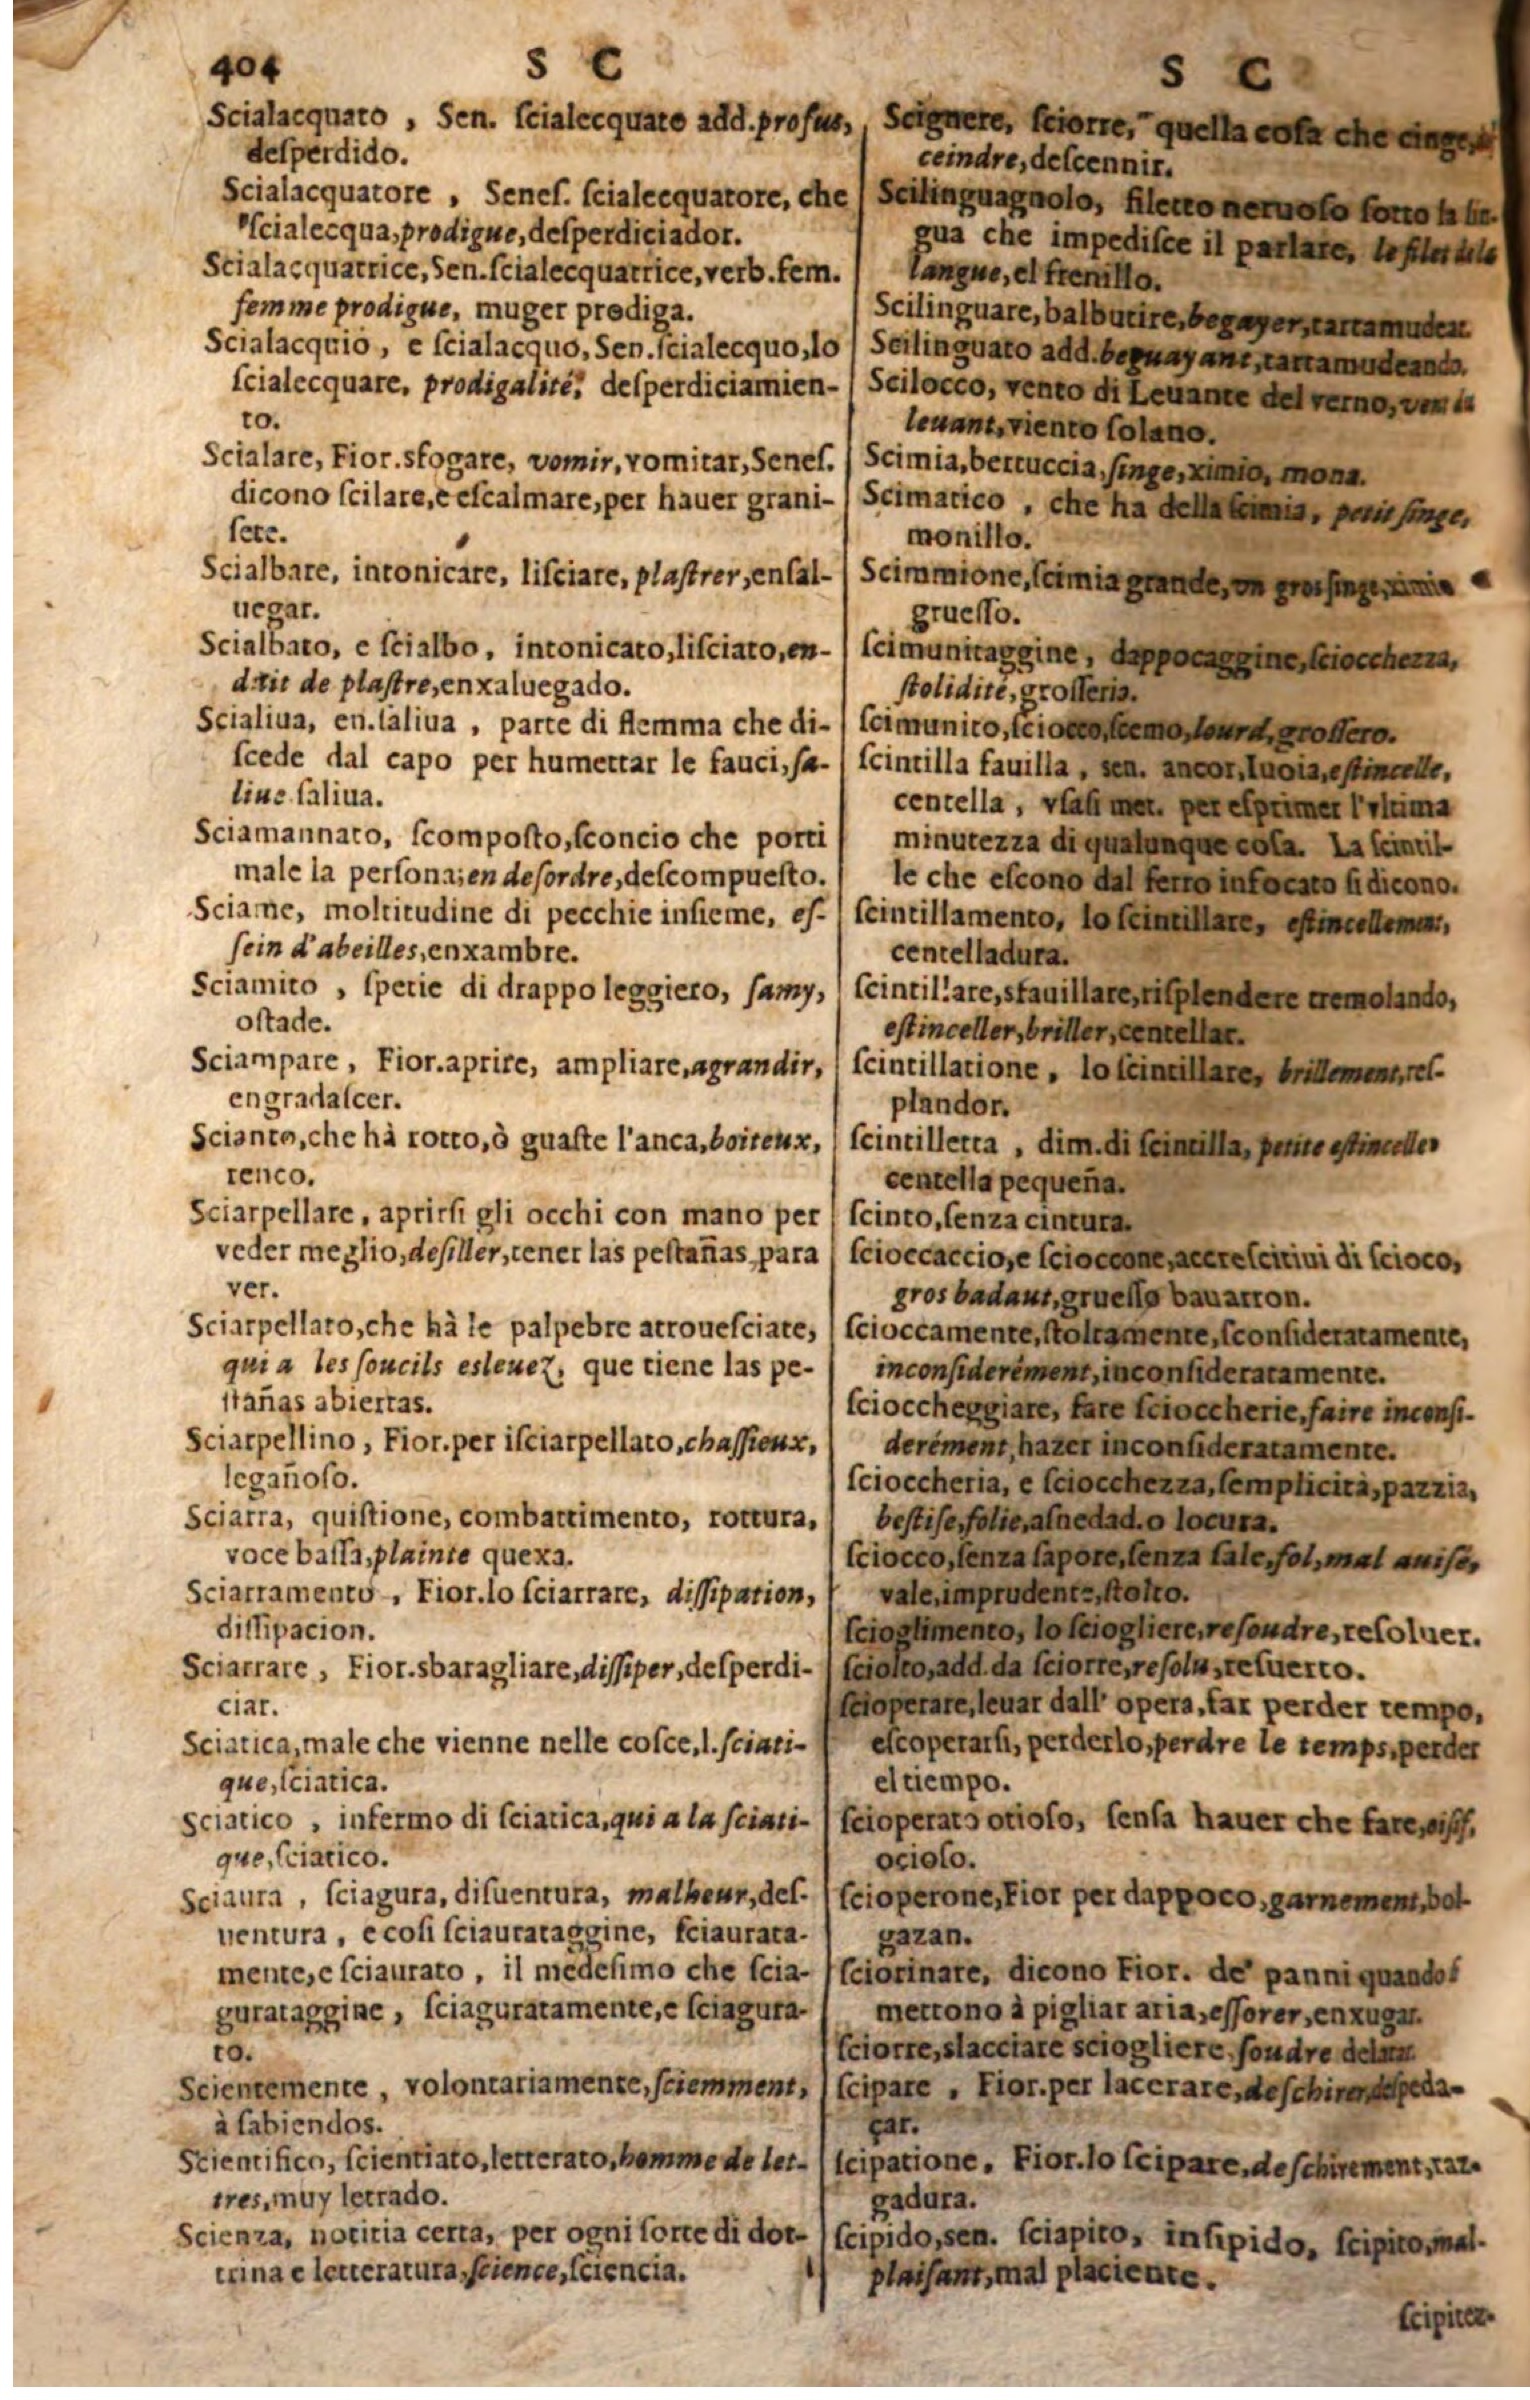 404 S C
Scialacquato , Sen. ſcialecquato add. profus,
deſperdido.
Scialacquatore , Seneſ. ſcialecquatore, che
ſcialecqua, prodigue, deſperdiciador.
Scialacquatrice, Sen. ſcialecquatrice, verb. fem.
femme prodigue, muger prodiga.
Scialacquio , e ſcialacquo, Sen. ſcialecquo, lo
ſcialecquare, prodigalité, deſperdiciamien-
to.
Scialare, Fior. sfogare, vomir, vomitar, Seneſ.
dicono ſcilare, e eſcalmare, per hauer grani-
ſete.
Scialbare, intonicare, liſciare, plaſtrer, enſal-
uegar.
Scialbato, e ſcialbo, intonicato, liſciato, en-
duit de plaſtre, enxaluegado.
Scialiua, en. ſaliua , parte di flemma che di-
ſcede dal capo per humettar le fauci, ſa-
liue ſaliua.
Sciamannato, ſcompoſto, ſconcio che porti
male la perſona; en deſordre, deſcompueſto.
Sciame, moltitudine di pecchie inſieme, eſ-
ſein d'abeilles, enxambre.
Sciamito , ſpetie di drappo leggiero, ſamy,
oſtade.
Sciampare , Fior. aprire, ampliare, agrandir,
engradaſcer.
Scianto, che hà rotto, ò guaſte l'anca, boiteux,
renco.
Sciarpellare, aprirſi gli occhi con mano per
veder meglio, deſiller, tener las peſtañas para
ver.
Sciarpellato, che hà le palpebre arroueſciate,
qui a les ſoucils esleuez, que tiene las pe-
ſtañas abiertas.
Sciarpellino , Fior. per iſciarpellato, chaſſieux,
legañoſo.
Sciarra, quiſtione, combattimento, rottura,
voce baſſa, plainte quexa.
Sciarramento , Fior. lo ſciarrare, diſſipation,
diſſipacion.
Sciarrare , Fior. sbaragliare, diſſiper, deſperdi-
ciar.
Sciatica, male che vienne nelle coſce, l. ſciati-
que, ſciatica.
Sciatico , infermo di ſciatica, qui a la ſciati-
que, ſciatico.
Sciaura , ſciagura, diſuentura, malheur, deſ-
uentura , e coſi ſciaurataggine, ſciaurata-
mente, e ſciaurato , il medeſimo che ſcia-
gurataggine , ſciaguratamente, e ſciagura-
to.
Scientemente , volontariamente, ſciemment,
à ſabiendos.
Scientifico, ſcientiato, letterato, homme de let-
tres, muy letrado.
Scienza, notitia certa, per ogni ſorte di dot-
trina e letteratura, ſcience, ſciencia.
S C
Scignere, ſciorre, quella coſa che cinge,
ceindre, deſcennir.
Scilinguagnolo, filetto neruoſo ſotto la lin-
gua che impediſce il parlare, le filet de la
langue, el frenillo.
Scilinguare, balbutire, begayer, tartamudear.
Scilinguato add. beguayant, tartamudeando.
Scilocco, vento di Leuante del verno, vent de
leuant, viento ſolano.
Scimia, bertuccia, ſinge, ximio, mona.
Scimatico , che ha della ſcimia, petit ſinge,
monillo.
Scimmione, ſcimia grande, vn gros ſinge, ximio
grueſſo.
ſcimunitaggine, dappocaggine, ſciocchezza,
ſtolidité, groſſeria.
ſcimunito, ſciocco, ſcemo, lourd, groſſero.
ſcintilla fauilla , sen. ancor, luoia, eſtincelle,
centella , vſaſi met. per eſprimer l'vltima
minutezza di qualunque coſa. La ſcintil-
le che eſcono dal ferro infocato ſi dicono.
ſcintillamento, lo ſcintillare, eſtincellement,
centelladura.
ſcintillare, sfauillare, riſplendere tremolando,
eſtinceller, briller, centellar.
ſcintillatione , lo ſcintillare, brillement, reſ-
plandor.
ſcintilletta , dim. di ſcintilla, petite eſtincelle,
centella pequeña.
ſcinto, ſenza cintura.
ſcioccaccio, e ſcioccone, accreſcitiui di ſcioco,
gros badaut, grueſſo bauarron.
ſcioccamente, ſtoltamente, ſconſideratamente,
inconſiderément, inconſideratamente.
ſcioccheggiare, fare ſcioccherie, faire inconſi-
derément, hazer inconſideratamente.
ſcioccheria, e ſciocchezza, ſemplicità, pazzia,
beſtiſe, folie, aſnedad. o locura.
ſciocco, ſenza ſapore, ſenza ſale, fol, mal auiſé,
vale, imprudente, ſtolto.
ſcioglimento, lo ſciogliere, reſoudre, reſoluer.
ſciolto, add. da ſciorre, reſolu, reſuerto.
ſcioperare, leuar dall' opera, far perder tempo,
eſcoperarſi, perderlo, perdre le temps, perder
el tiempo.
ſcioperato otioſo, ſenſa hauer che fare, oiſif,
ocioſo.
ſcioperone, Fior per dappoco, garnement, bol-
gazan.
ſciorinare, dicono Fior. de' panni quando ſ
mettono à pigliar aria, eſſorer, enxugar.
ſciorre, slacciare sciogliere, ſoudre delatar.
ſcipare , Fior. per lacerare, deſchirer, deſpeda-
çar.
ſcipatione, Fior. lo ſcipare, deſchirement, raz-
gadura.
ſcipido, sen. ſciapito, inſipido, ſcipito, mal-
plaiſant, mal placiente.
ſcipitez-